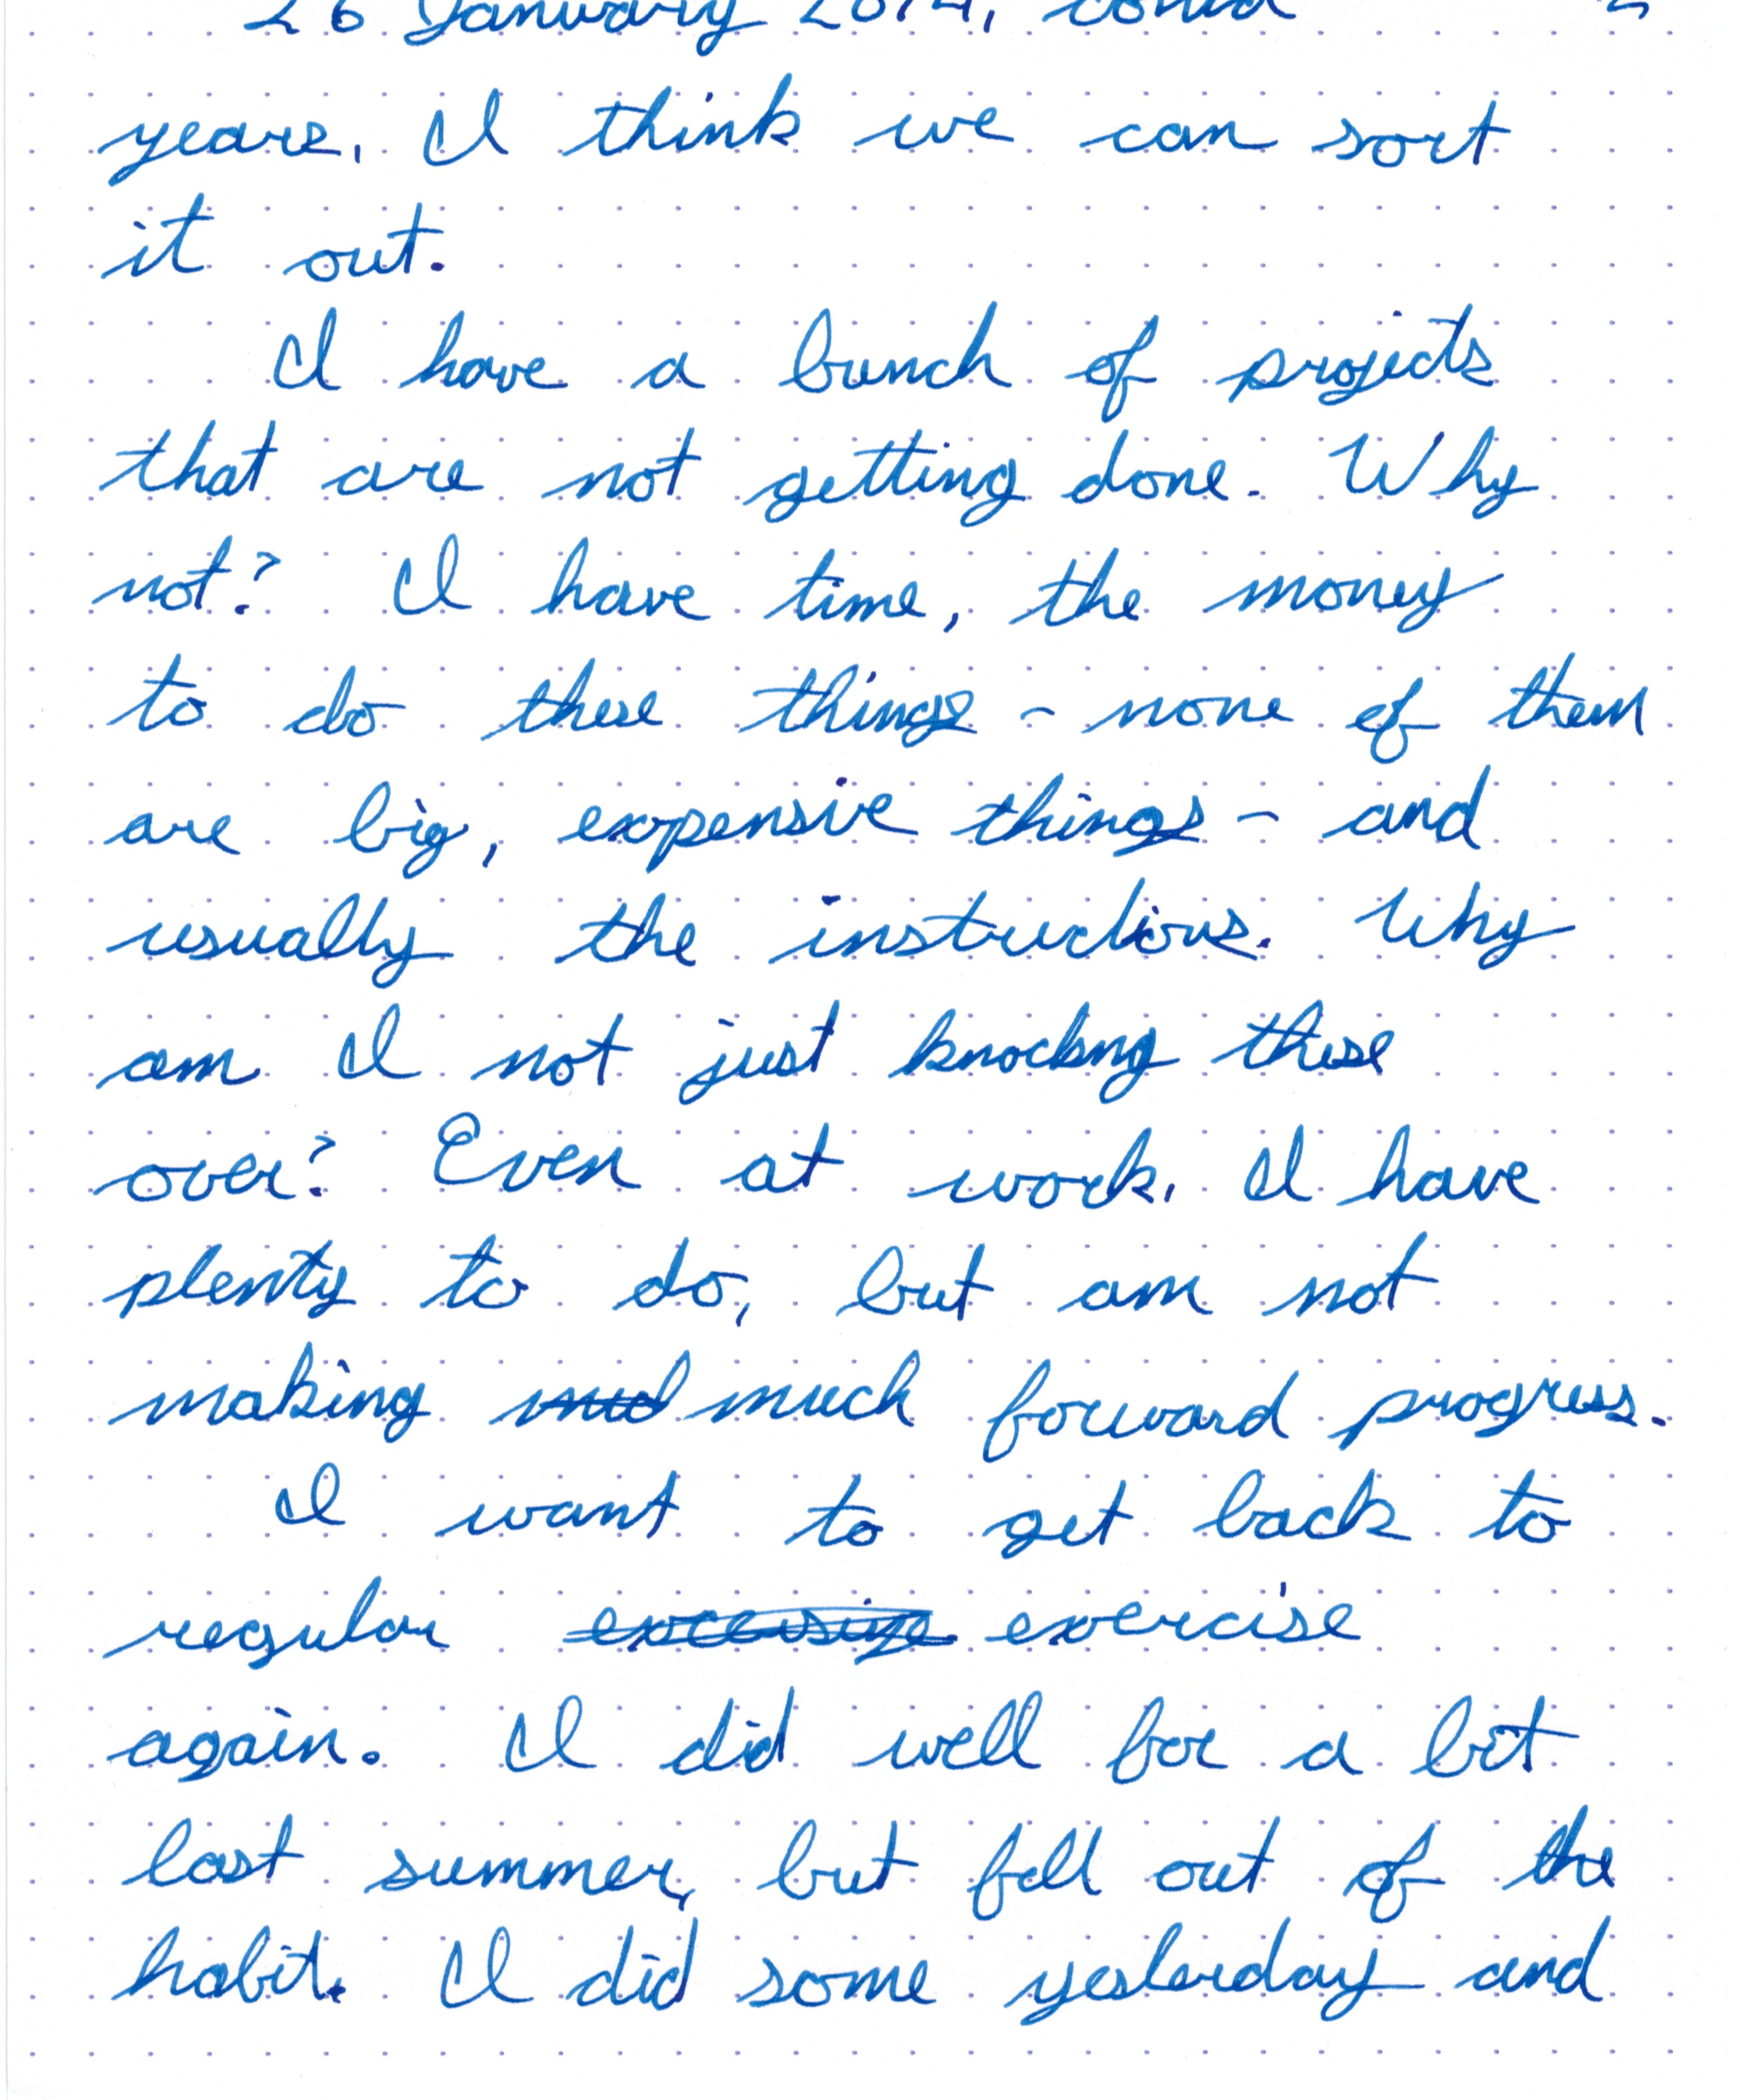 26 January 2014, contd
years. I think we can sort
it out.
I have a bunch of projects
that are not getting done. Why
not? I have time, the money
to do these things - none of them
are big, expensive things - and
usually the instructions. Why
am I not just knocking these
over? Even at work. I have
plenty to do, but am not
making much forward progress.
I want to get back to
regular excersize exercise
again. I did well for a bit
last summer, but fell out of the
habit. I did some yesterday and